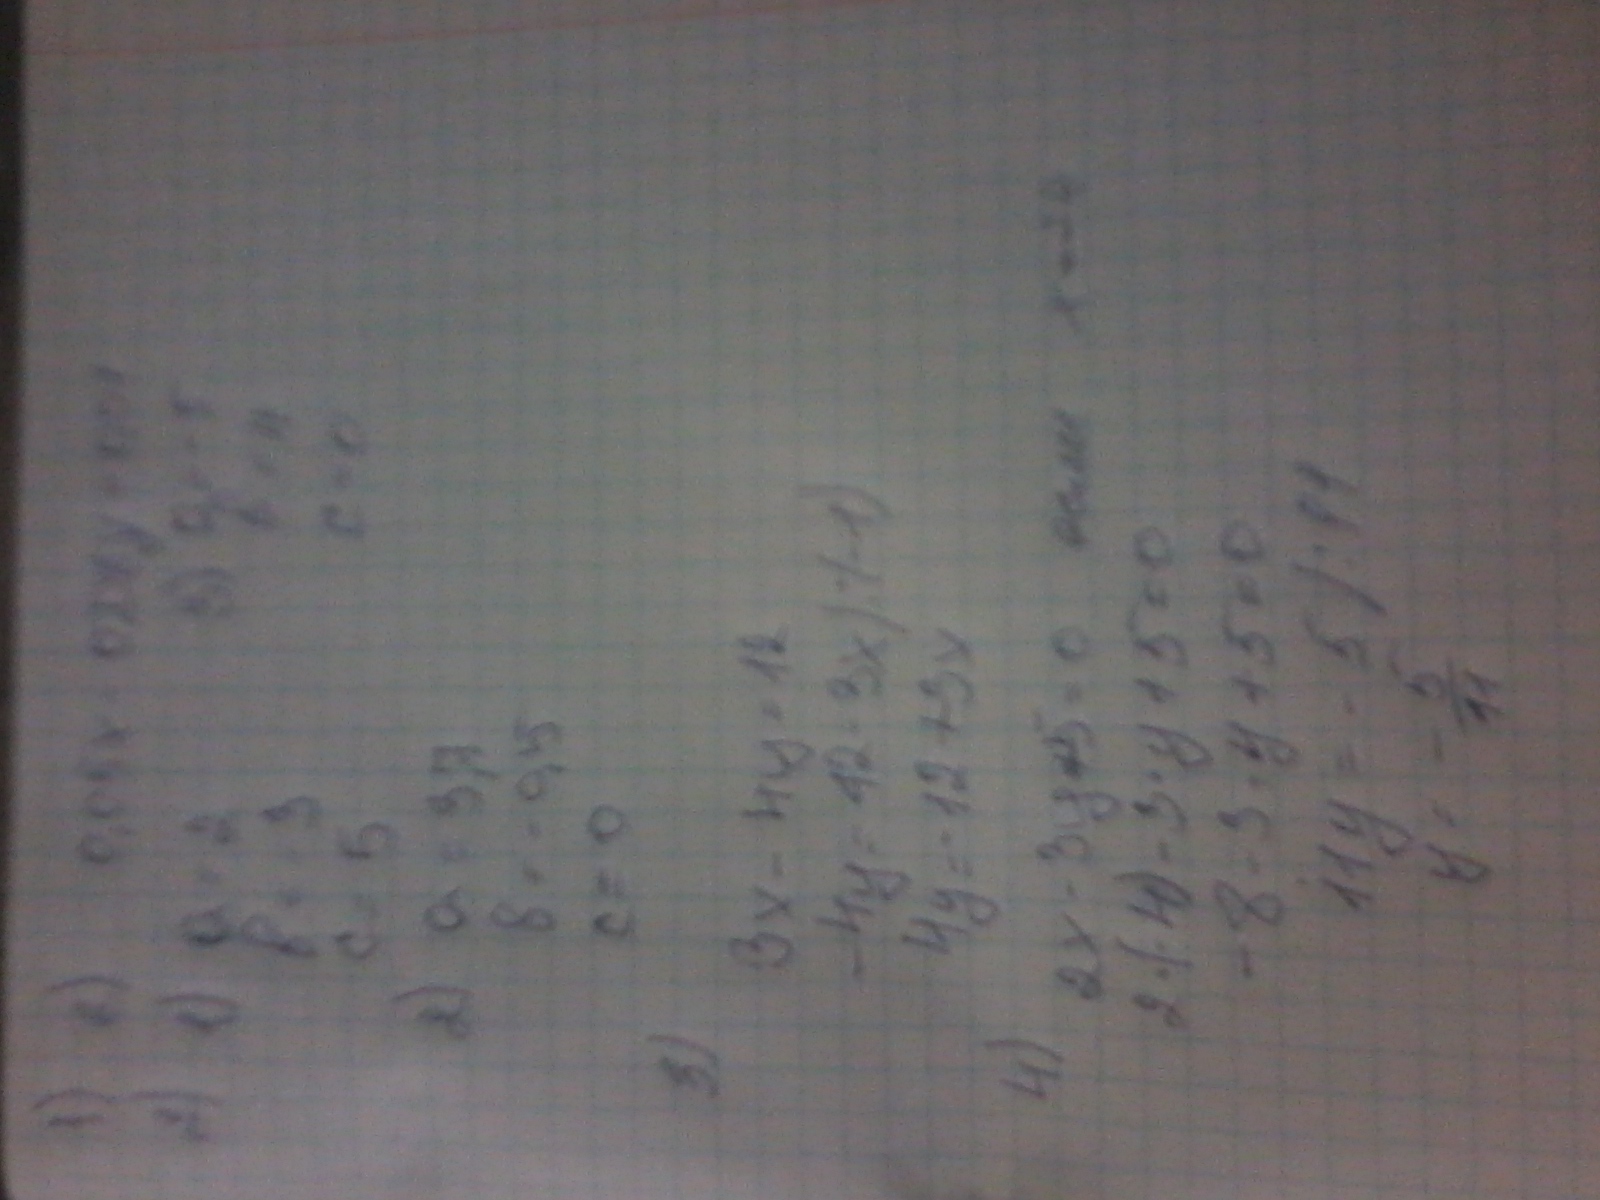 1) 2) 0,05x - 0,2xy =
2) 1) a = 2 3) a = - 1
b = - 3 b = 4
c = 5 c = 0
2) a = 3,7
b = - 0,5
c = 0
3) 3x - 4y = 12
-4y = 12 - 3x / · (-1)
4y = -12 + 3x
4) 2x - 3y + 5 = 0 если
2 · (-4) - 3 · y + 5 = 0
-8 - 3 · y + 5 = 0
11y = - 5 / : 11
y = - 5/11